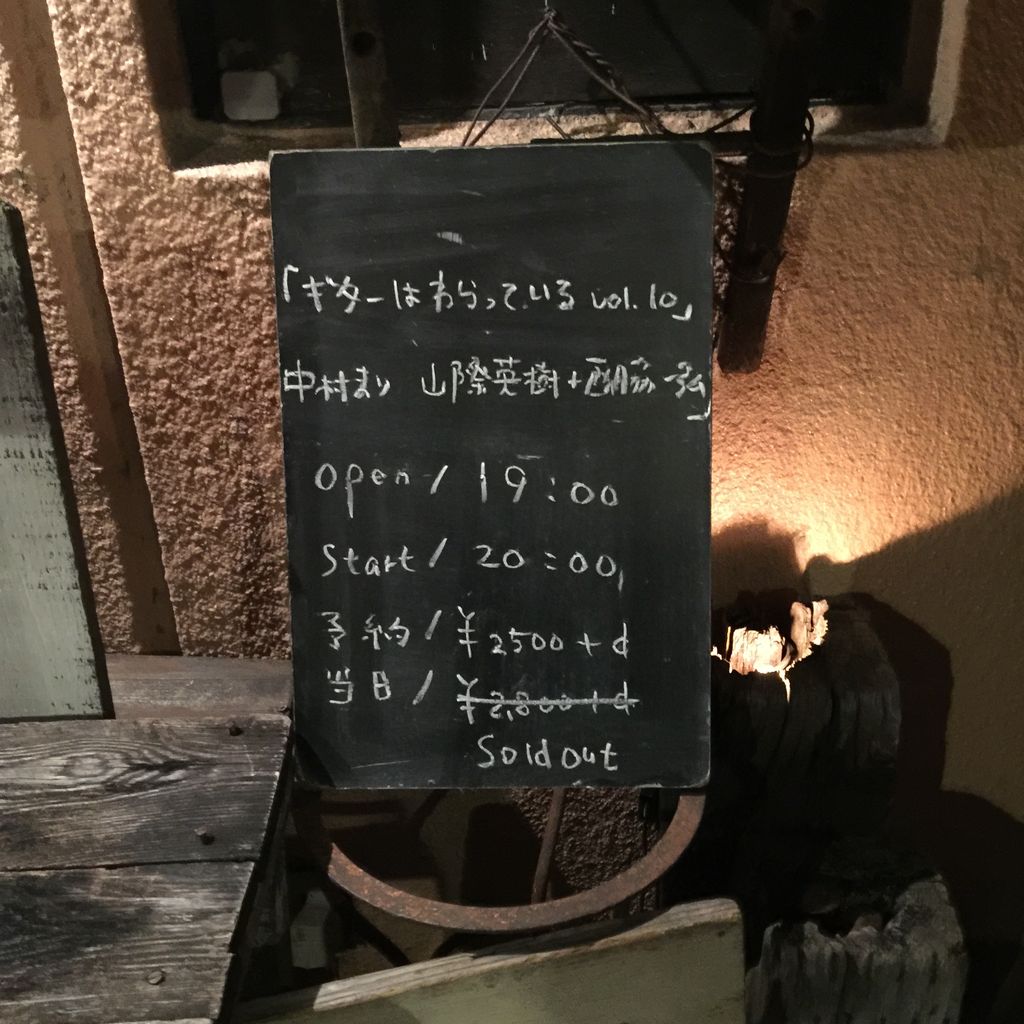 「ギターはわらっている vol.10」
中村まり 山際英樹+西脇 弘
Open / 19:00
Start / 20:00
予約 / ¥2500+d
当日 / ¥2,800+d
Sold out